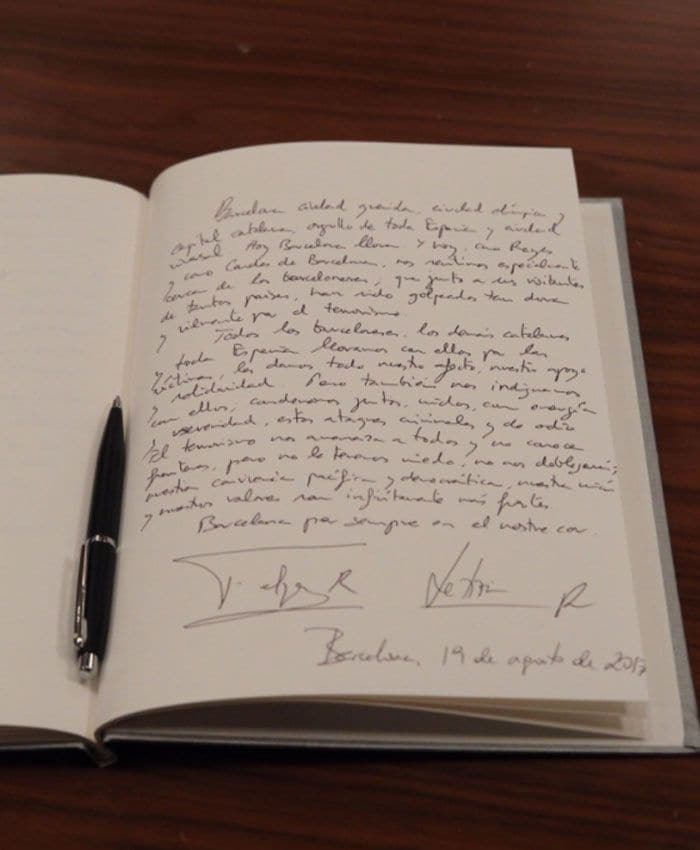 Barcelona ciudad querida, ciudad olímpica y
capital catalana, orgullo de toda España y ciudad
Hoy Barcelona llora y hoy, como Reyes
y como Condes de Barcelona, nos sentimos especialmente
cerca de los barceloneses, que junto a sus visitantes
de tantos países, han sido golpeados tan dura
y vilmente por el terrorismo.
Todos los barceloneses, los demás catalanes
y toda España lloramos con ellos por las
víctimas, les damos todo nuestro afecto, nuestro apoyo
y solidaridad. Pero también nos indignamos
con ellos, condenamos juntos, unidos, con energía
y severidad, estos ataques criminales y de odio.
El terrorismo nos amenaza a todos y no conoce
fronteras, pero no le tenemos miedo, no nos doblegará;
nuestra convivencia pacífica y democrática, nuestra unión
y nuestros valores son infinitamente más fuertes.
Barcelona per sempre en el nostre cor.
Felipe R Letizia R
Barcelona, 19 de agosto de 2017